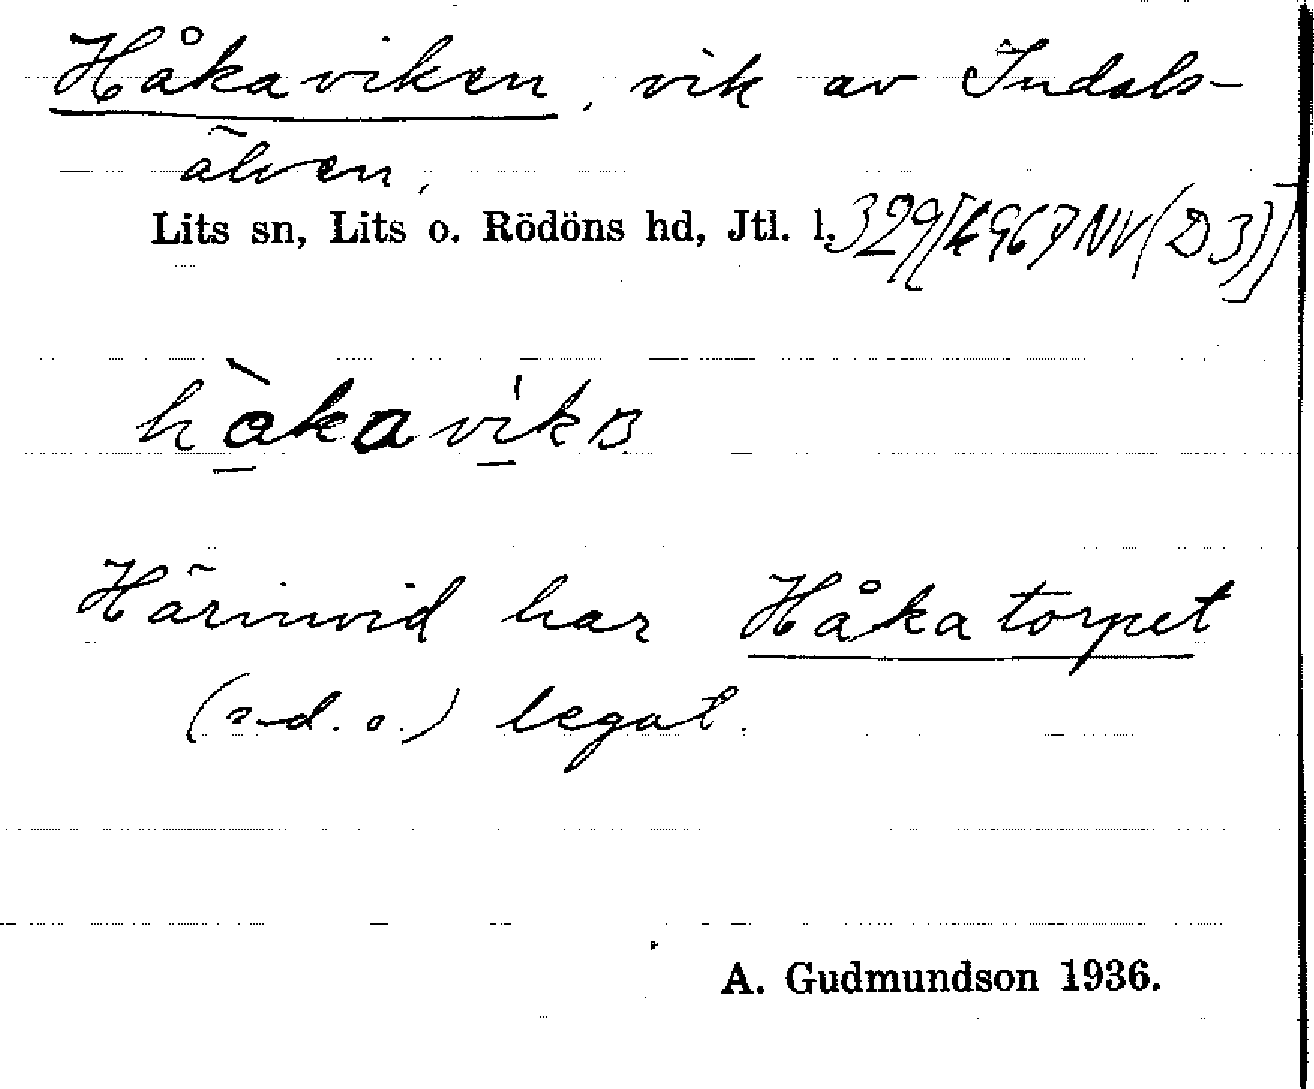 Håkaviken, vik av Indals-
älven,
Lits sn, Lits o. Rödöns hd, Jtl. l. 329 [k 967 NV (D 3)]
hàkavikɞ
Härinvid har Håkatorpet
(s. d. o.) legat.
A. Gudmundson 1936.